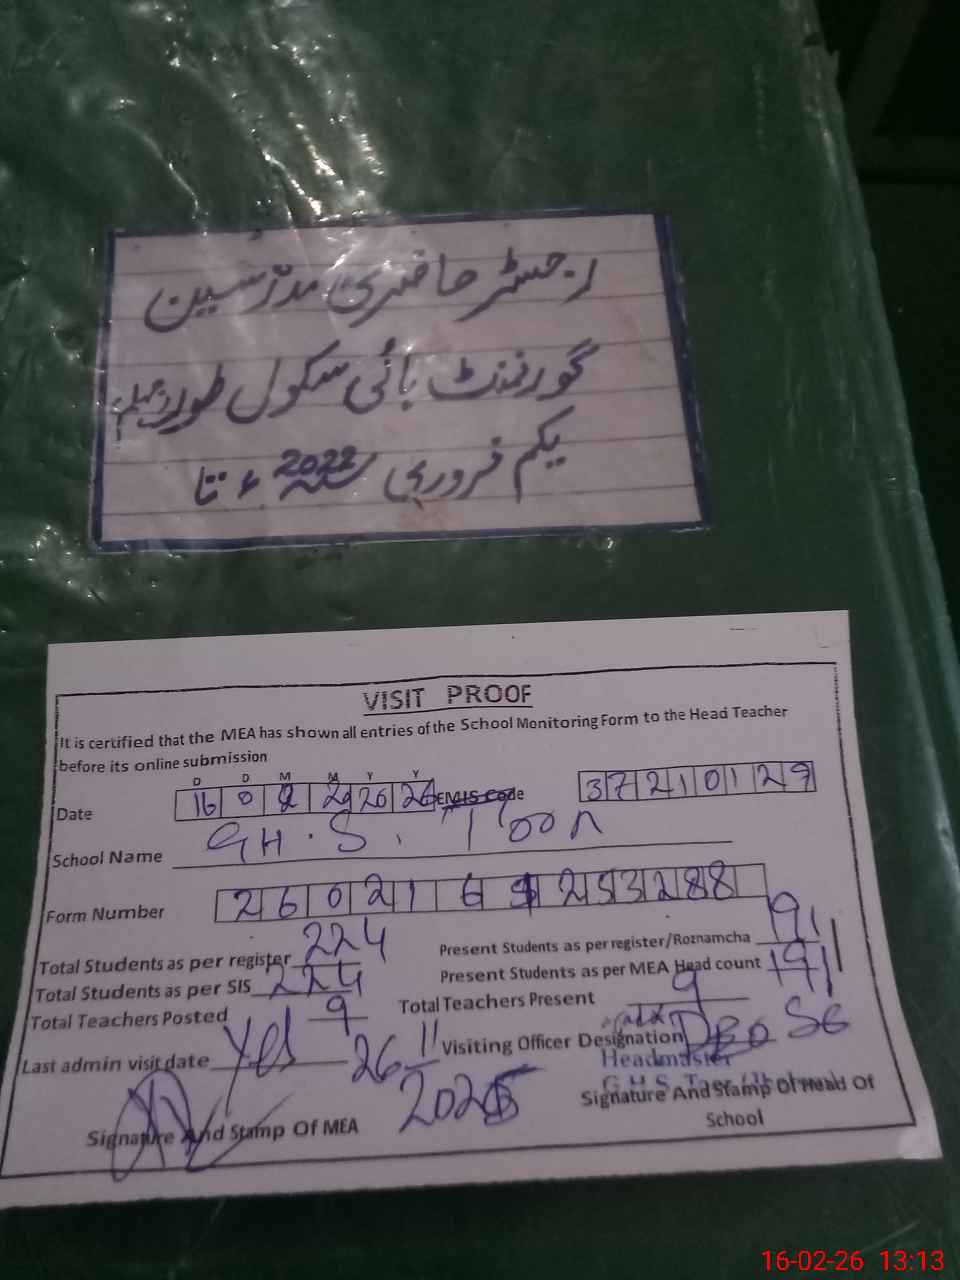 رجسٹر حاضری مدرّسین
گورنمنٹ ہائی سکول طور جہلم
یکم فروری 2022ء تا
VISIT PROOF
It is certified that the MEA has shown all entries of the School Monitoring Form to the Head Teacher
before its online submission
D D M M Y Y
Date 16 0 2 26 26 EMIS Code 37210129
School Name G H . S . Toor
Form Number 2 6 0 2 1 6 1 2 5 3 2 8 8
Total Students as per register 224 Present Students as per register/Roznamcha 191
Total Students as per SIS 224 Present Students as per MEA Head count 191
Total Teachers Posted 9 Total Teachers Present 9
Last admin visit date Yes 26 11 2025 Visiting Officer Designation DEO SE
Headmaster
G.H.S
Signature And Stamp Of MEA Signature And Stamp Of Head Of
School
16-02-26 13:13